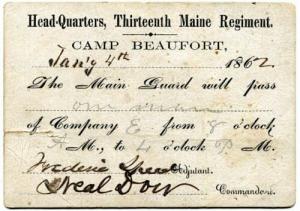 Head-Quarters, Thirteenth Maine Regiment.
CAMP BEAUFORT,
Jan'y 4th 1862
The Main Guard will pass
one man
of Company E from 8 o'clock
A M., to 4 o'clock P M.
Frederic Speed Adjutant.
Neal Dow Commanding.